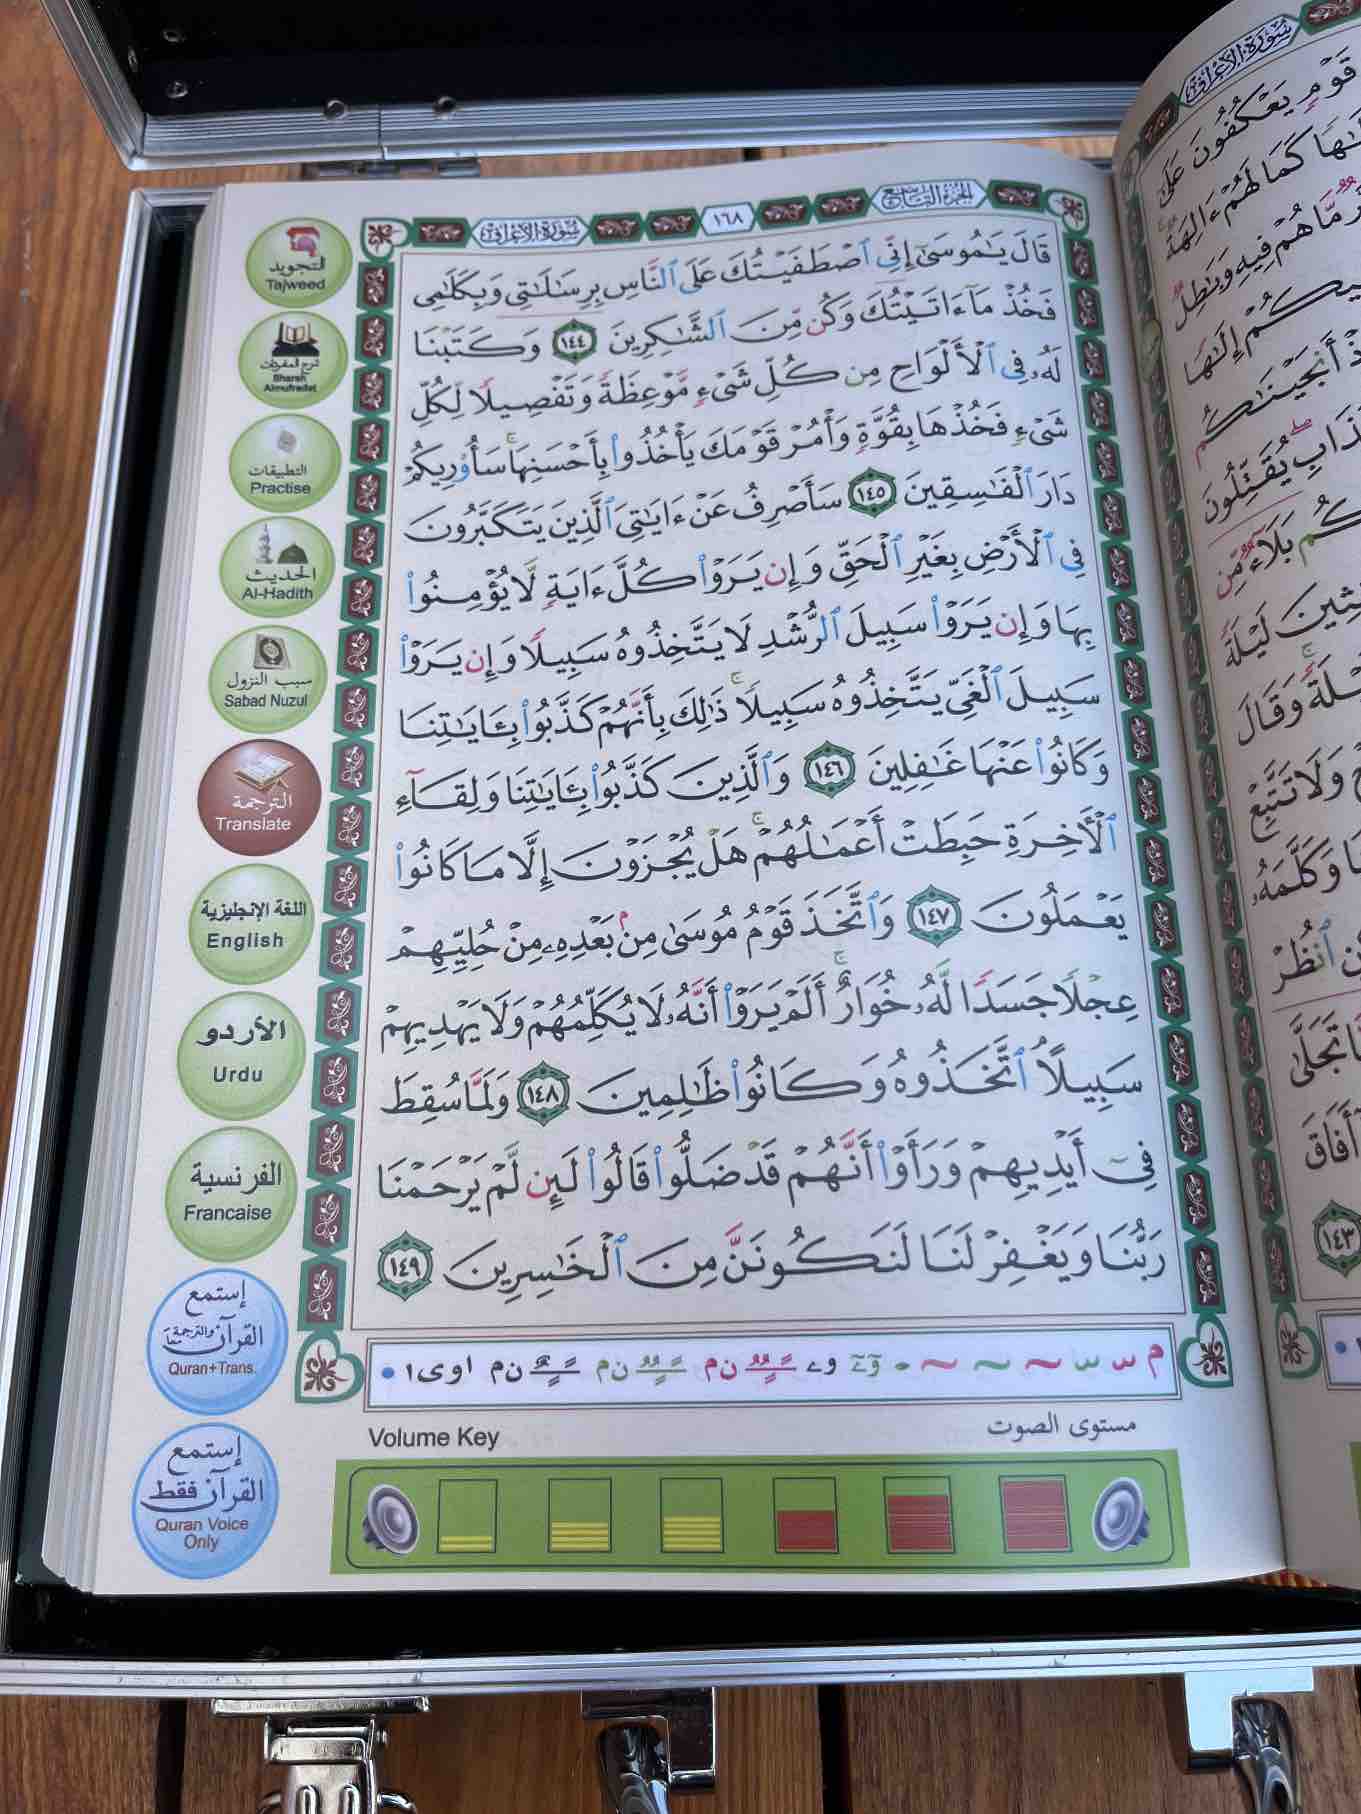 سورة الأعراف
١٦٨
الجزء التاسع
قَالَ يَٰمُوسَىٰٓ إِنِّي ٱصۡطَفَيۡتُكَ عَلَى ٱلنَّاسِ بِرِسَٰلَٰتِي وَبِكَلَٰمِي
فَخُذۡ مَآ ءَاتَيۡتُكَ وَكُن مِّنَ ٱلشَّٰكِرِينَ ١٤٤ وَكَتَبۡنَا
لَهُۥ فِي ٱلۡأَلۡوَاحِ مِن كُلِّ شَيۡءٖ مَّوۡعِظَةٗ وَتَفۡصِيلٗا لِّكُلِّ
شَيۡءٖ فَخُذۡهَا بِقُوَّةٖ وَأۡمُرۡ قَوۡمَكَ يَأۡخُذُواْ بِأَحۡسَنِهَاۚ سَأُوْرِيكُمۡ
دَارَ ٱلۡفَٰسِقِينَ ١٤٥ سَأَصۡرِفُ عَنۡ ءَايَٰتِيَ ٱلَّذِينَ يَتَكَبَّرُونَ
فِي ٱلۡأَرۡضِ بِغَيۡرِ ٱلۡحَقِّ وَإِن يَرَوۡاْ كُلَّ ءَايَةٖ لَّا يُؤۡمِنُواْ
بِهَا وَإِن يَرَوۡاْ سَبِيلَ ٱلرُّشۡدِ لَا يَتَّخِذُوهُ سَبِيلٗا وَإِن يَرَوۡاْ
سَبِيلَ ٱلۡغَيِّ يَتَّخِذُوهُ سَبِيلٗاۚ ذَٰلِكَ بِأَنَّهُمۡ كَذَّبُواْ بِـَٔايَٰتِنَا
وَكَانُواْ عَنۡهَا غَٰفِلِينَ ١٤٦ وَٱلَّذِينَ كَذَّبُواْ بِـَٔايَٰتِنَا وَلِقَآءِ
ٱلۡأٓخِرَةِ حَبِطَتۡ أَعۡمَٰلُهُمۡۚ هَلۡ يُجۡزَوۡنَ إِلَّا مَا كَانُواْ
يَعۡمَلُونَ ١٤٧ وَٱتَّخَذَ قَوۡمُ مُوسَىٰ مِنۢ بَعۡدِهِۦ مِنۡ حُلِيِّهِمۡ
عِجۡلٗا جَسَدٗا لَّهُۥ خُوَارٌۚ أَلَمۡ يَرَوۡاْ أَنَّهُۥ لَا يُكَلِّمُهُمۡ وَلَا يَهۡدِيهِمۡ
سَبِيلًاۘ ٱتَّخَذُوهُ وَكَانُواْ ظَٰلِمِينَ ١٤٨ وَلَمَّا سُقِطَ
فِيٓ أَيۡدِيهِمۡ وَرَأَوۡاْ أَنَّهُمۡ قَدۡ ضَلُّواْ قَالُواْ لَئِن لَّمۡ يَرۡحَمۡنَا
رَبُّنَا وَيَغۡفِرۡ لَنَا لَنَكُونَنَّ مِنَ ٱلۡخَٰسِرِينَ ١٤٩
مستوى الصوت
Volume Key
التجويد
Tajweed
شرح المفردات
Sharah
Almufradat
التطبيقات
Practise
الحديث
Al-Hadith
سبب النزول
Sabad Nuzul
الترجمة
Translate
اللغة الإنجليزية
English
الأردو
Urdu
الفرنسية
Francaise
إستمع
القرآن والترجمة معا
Quran+Trans.
إستمع
القرآن فقط
Quran Voice
Only
سورة الأعراف
قَوۡمٖ يَعۡكُفُونَ عَلَىٰٓ
كَمَا لَهُمۡ ءَالِهَةٞۚ
مَّا هُمۡ فِيهِ وَبَٰطِلٞ
إِلَٰهٗا
أَنجَيۡنَٰكُم
يُقَتِّلُونَ
بَلَآءٞ مِّن
لَيۡلَةٗ
وَقَالَ
وَلَا تَتَّبِعۡ
وَكَلَّمَهُۥ
ٱنظُرۡ
تَجَلَّىٰ
أَفَاقَ
١٤٣